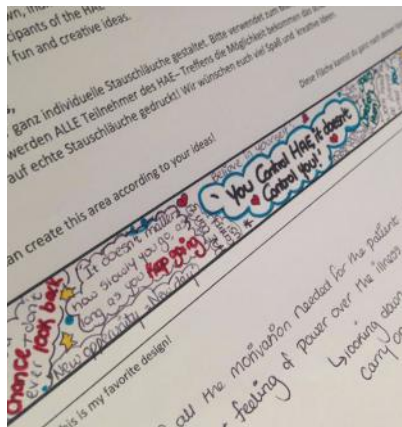 own,
cipants of the HAE
r fun and creative ideas.
ganz individuelle Stauschläuche gestaltet. Bitte verwendet zum
werden ALLE Teilnehmer des HAE– Treffens die Möglichkeit bekommen das
auf echte Stauschläuche gedruckt! Wir wünschen euch viel Spaß und kreative Ideen
Diese Fläche kannst du ganz nach deinen
an create this area according to your ideas!
Believe in yourself
'You Control HAE, it doesn't
Control You!'
It doesn't matter
how slowly you go, as
long as you keep going
New opportunity New day
Chance
don't
ever look back
his is my favorite design!
all the motivation needed for the patient
feeling of power over the illness
↳ looking down
carry on